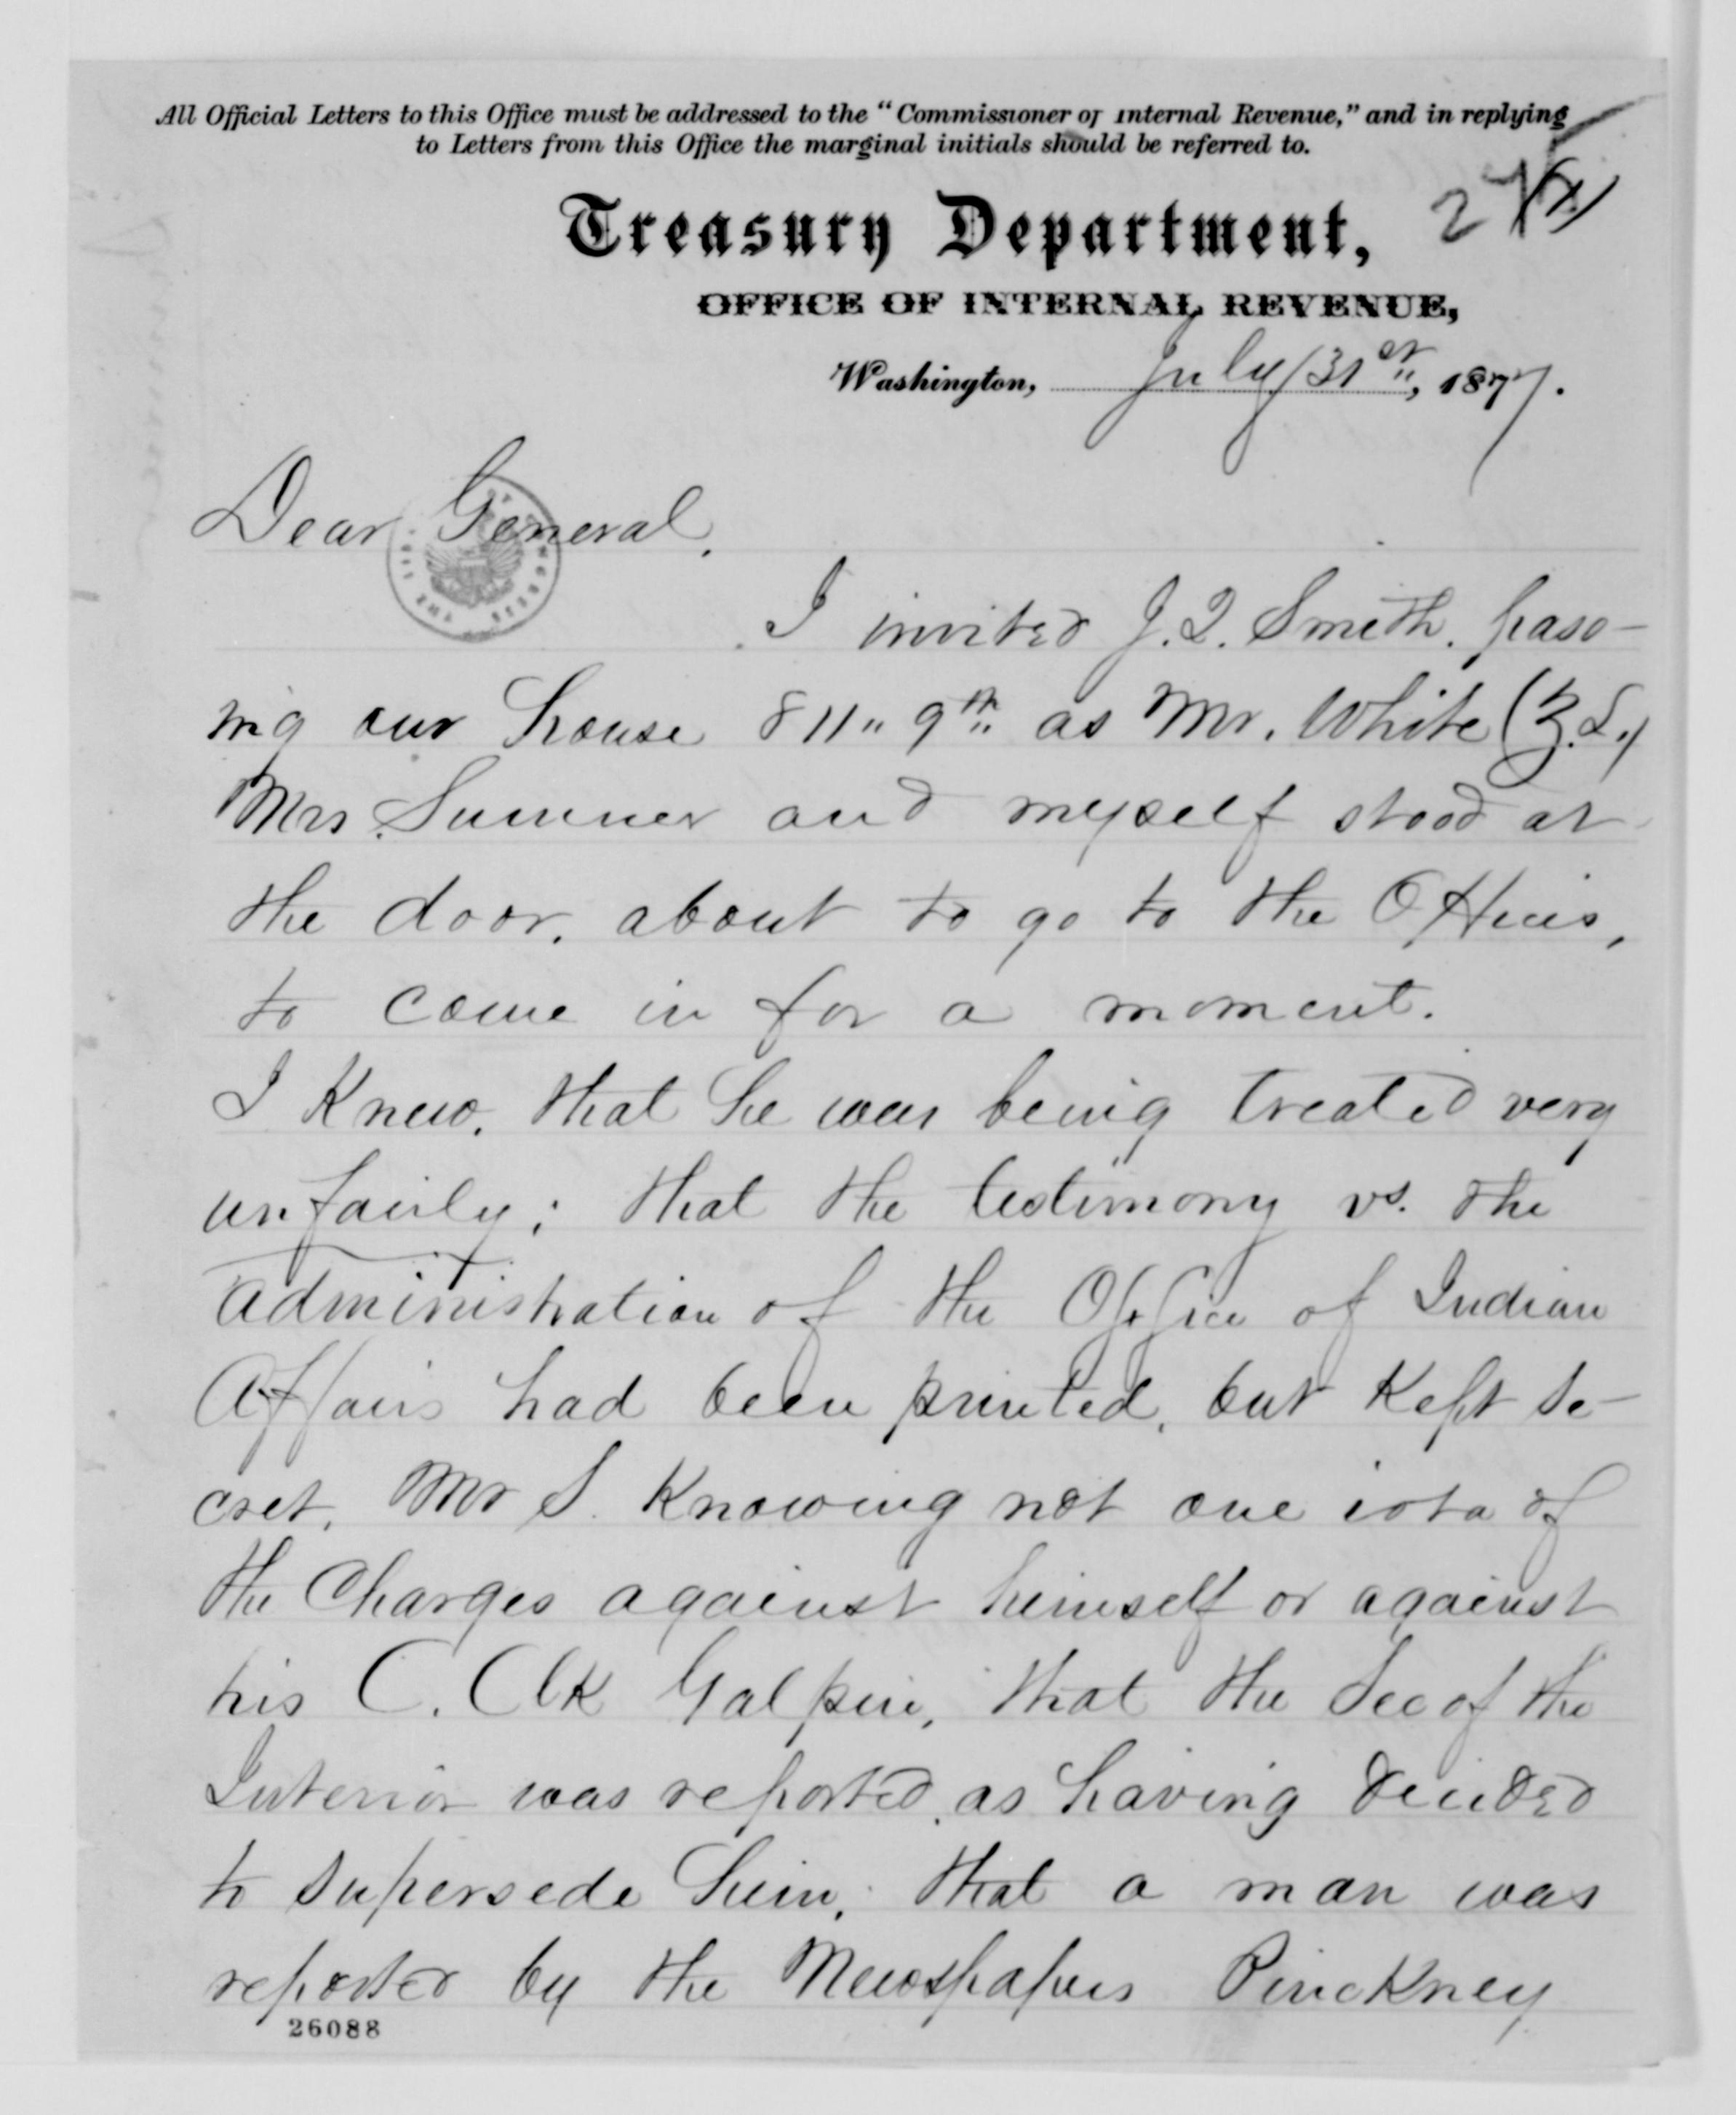 All Official Letters to this Office must be addressed to the "Commissioner of Internal Revenue," and in replying
to Letters from this Office the marginal initials should be referred to.
Treasury Department,
OFFICE OF INTERNAL REVENUE,
Washington, July 31st, 1877.
Dear General,
I invited J. Q. Smith, pass-
ing our house 811" 9th as Mr. White (Z. S.)
Mrs. Sumner and myself stood at
the door, about to go to the Offices,
to come in for a moment.
I knew, that he was being treated very
unfairly; that the testimony vs. the
Administration of the Office of Indian
Affairs had been printed, but kept se-
cret, Mr S. knowing not one iota of
the Charges against himself or against
his C. Clk Galpin, that the Sec of the
Interior was reported, as having decided
to supersede him; that a man was
reported by the Newspapers Pinckney
26088